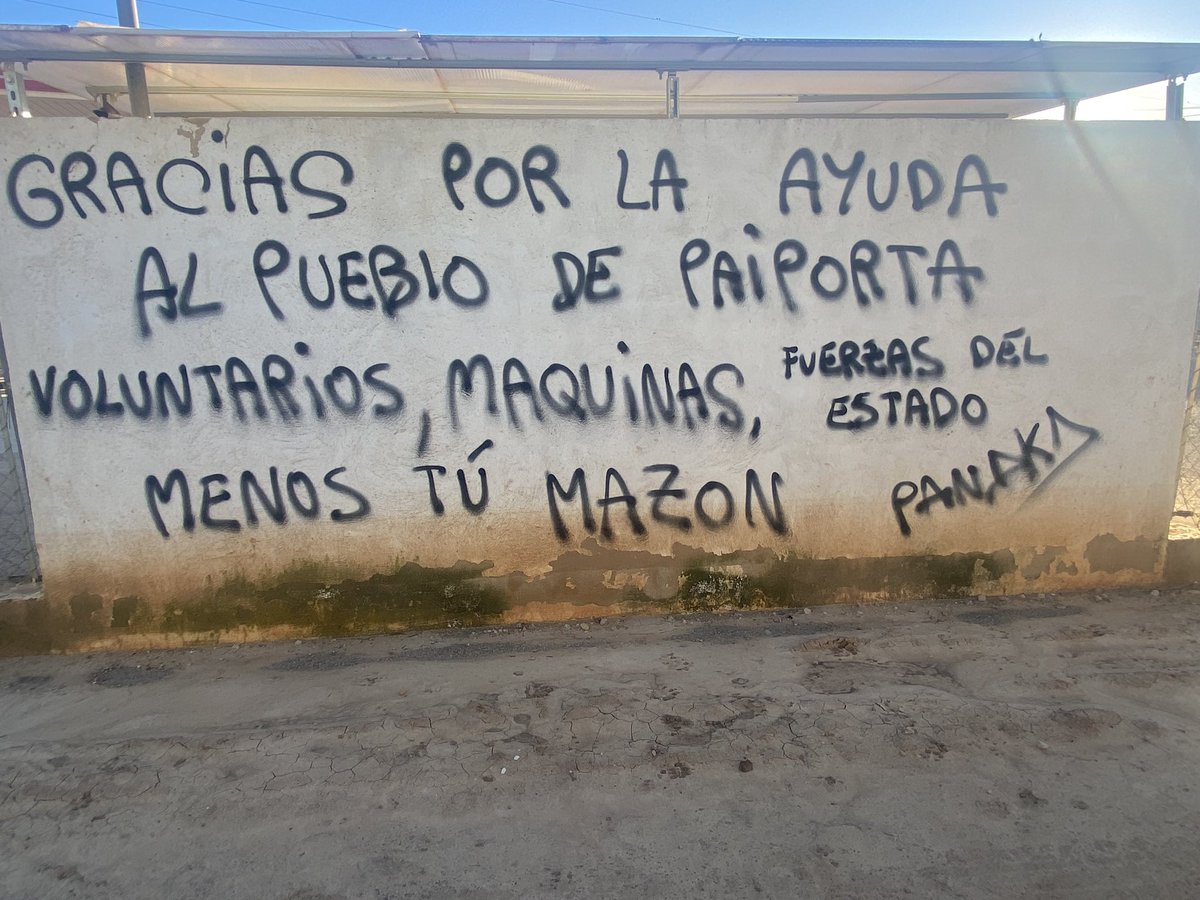 GRACIAS POR LA AYUDA
AL PUEBLO DE PAIPORTA
VOLUNTARIOS, MAQUINAS, FUERZAS DEL
ESTADO
MENOS TÚ MAZON PANAKA